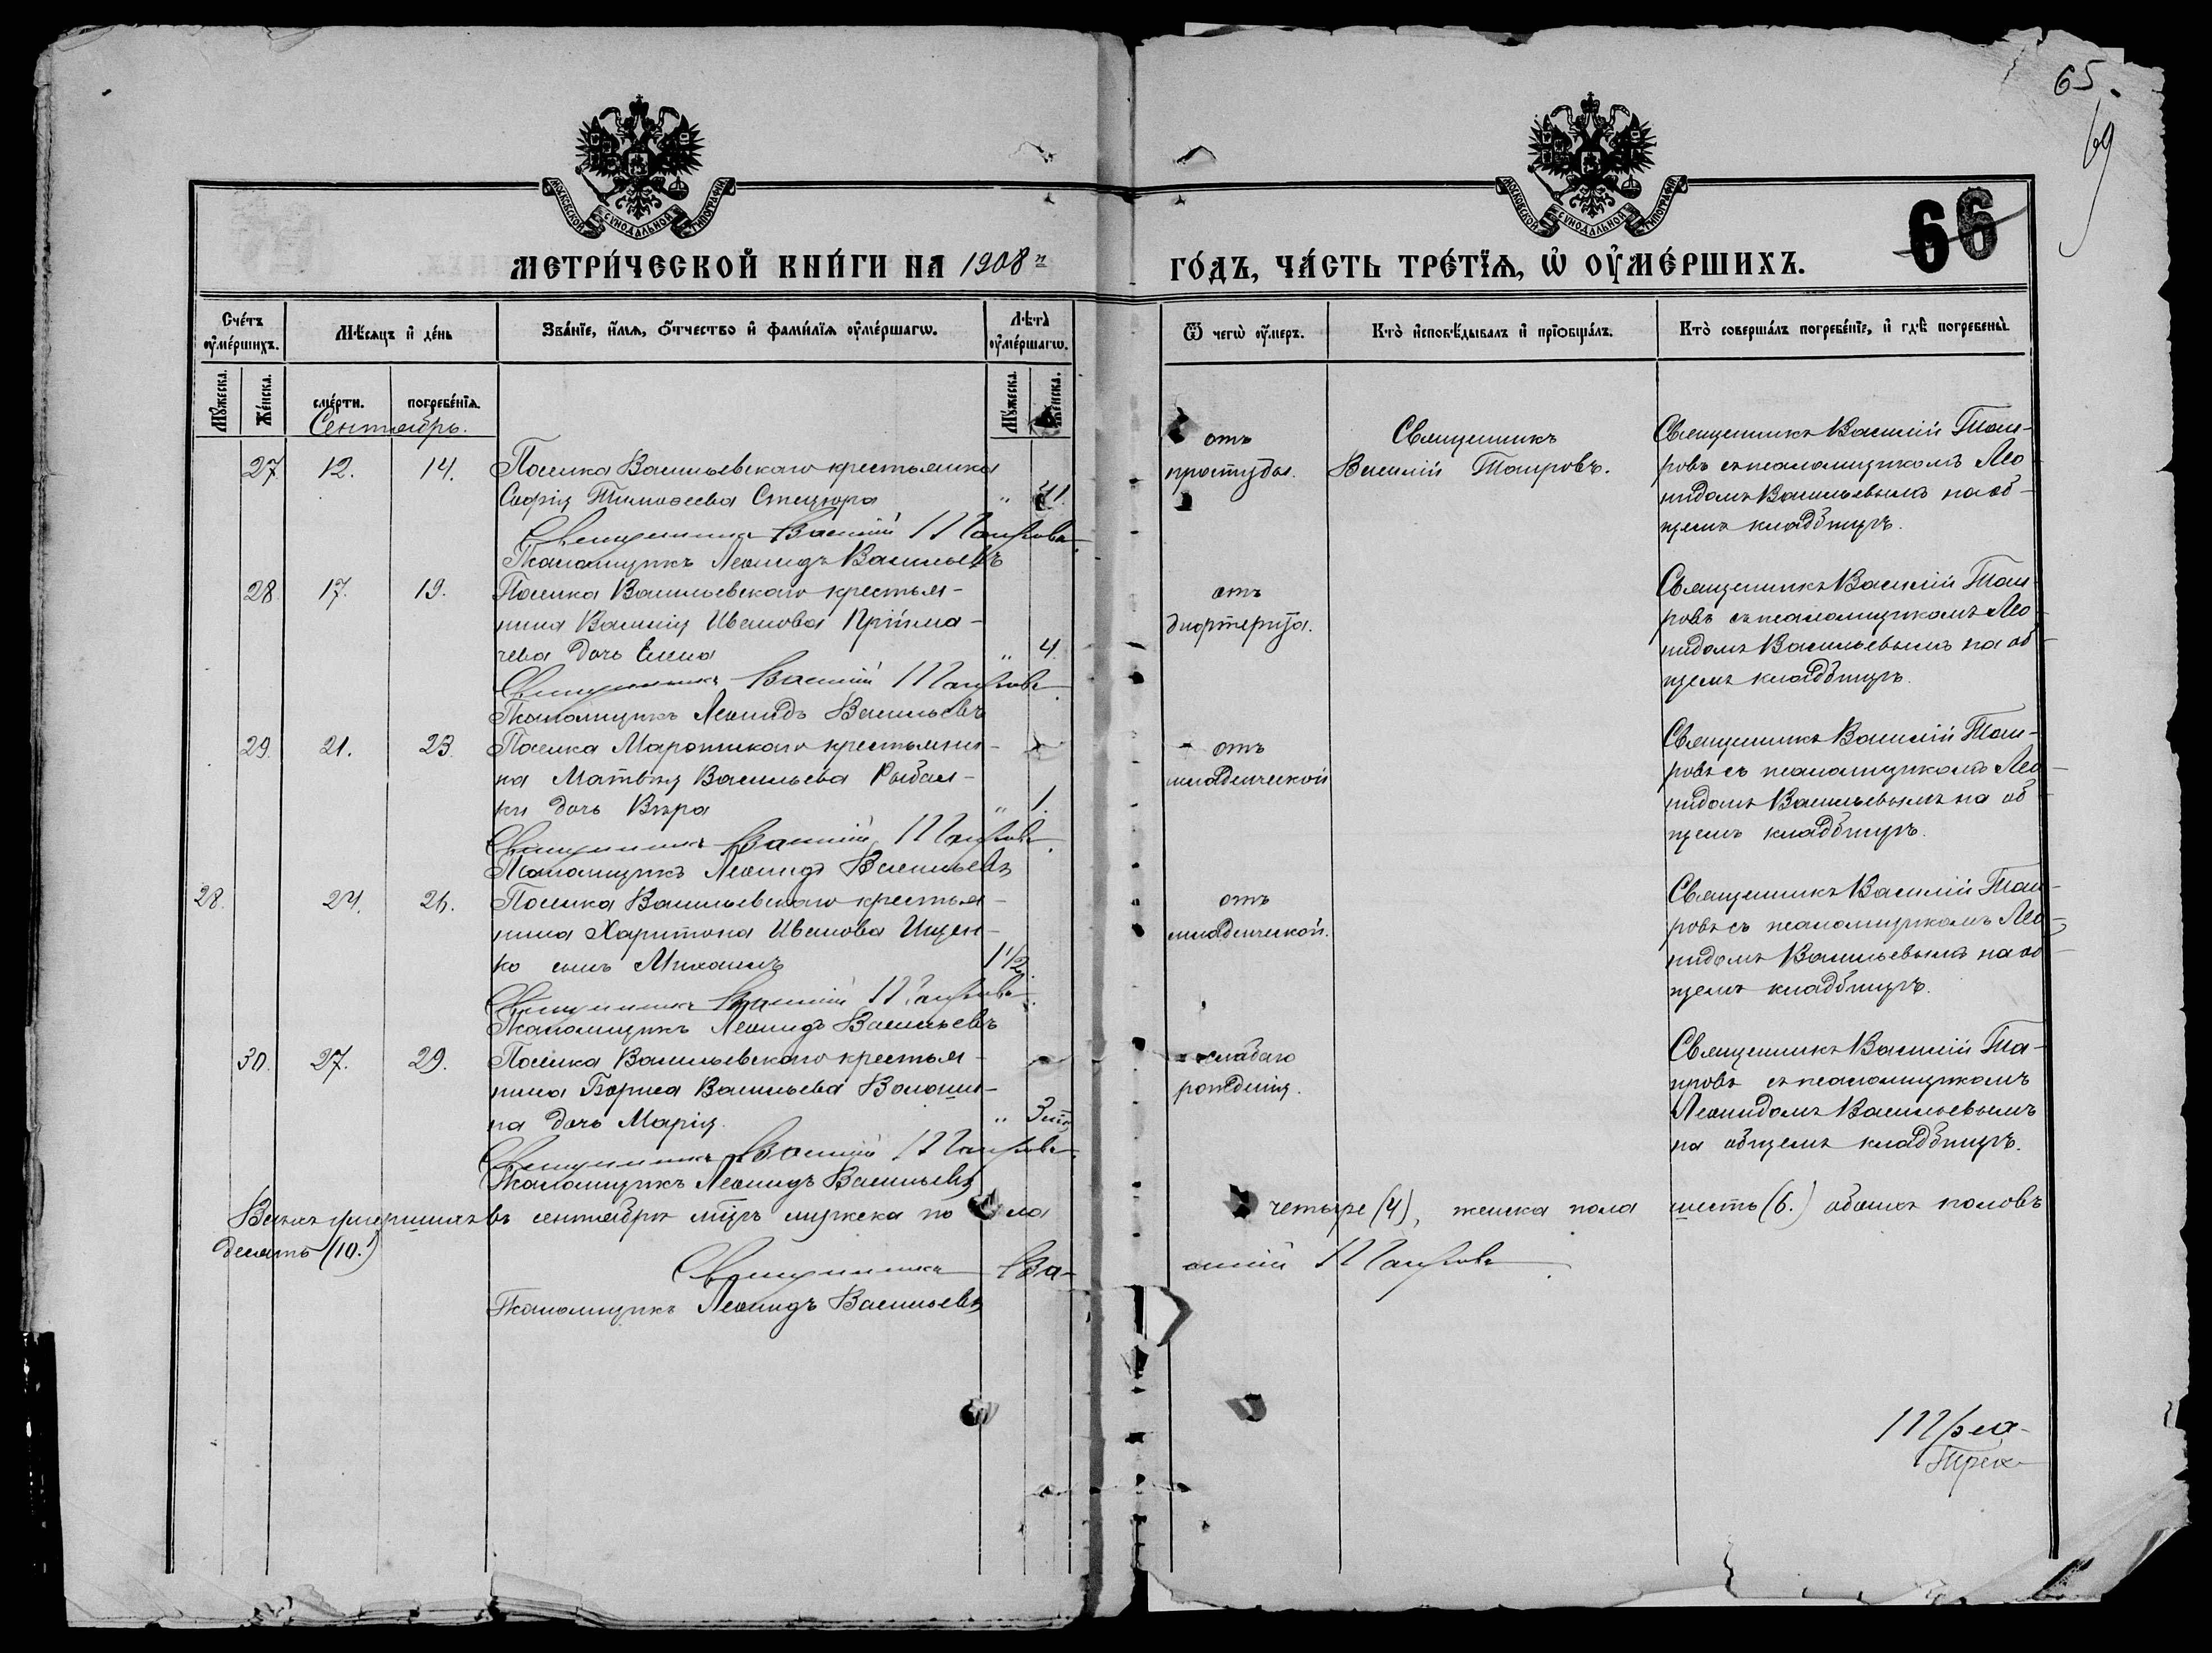 65.
69
МОСКОВСКОЙ СѴНОДАЛЬНОЙ ТИПОГРАФІИ
МОСКОВСКОЙ СѴНОДАЛЬНОЙ ТИПОГРАФІИ
66
МЕТРИ́ЧЕСКОЙ КНИ́ГИ НА 1908 й ГО́ДЪ, ЧА́СТЬ ТРЕ́ТЇѦ, Ѡ ОУМЕ́РШИХЪ.
Сче́тъ оуме́ршихъ.
Мѣ́сяцъ и де́нь
Зва́нїе, и́мѧ, о́тчество и фами́лїѧ оуме́ршагѡ.
Лѣ́та оуме́ршагѡ.
Ѿ чегѡ̀ оу́меръ.
Кто̀ и҆сповѣ́дывалъ и҆ прїѡбща́лъ.
Кто̀ соверша́лъ погребе́нїе, и҆ гдѣ̀ погребены̀.
Мꙋ́жеска. Же́нска. сме́рти. погребе́нїѧ. Мꙋ́жеска. Же́нска.
Сентябрь.
27. 12. 14. Поселка Васильевскаго крестьянка
Софія Тимоѳеева Стецюра " 41.
Священникъ Василій Таировъ.
Псаломщикъ Леонидъ Васильевъ
отъ
простуды.
Священникъ
Василій Таировъ.
Священникъ Василій Таи-
ровъ съ псаломщикомъ Лео-
нидомъ Васильевымъ на об-
щемъ кладбищѣ.
28. 17. 19. Поселка Васильевскаго крестья-
нина Василія Иванова Прійма-
чева дочь Елена " 4.
Священникъ Василій Таировъ.
Псаломщикъ Леонидъ Васильевъ
отъ
дифтерита.
Священникъ Василій Таи-
ровъ съ псаломщикомъ Лео-
нидомъ Васильевымъ на об-
щемъ кладбищѣ.
29. 21. 23. Поселка крестьяни-
на Матвѣя Васильева Рыбал-
ки дочь Вѣра " 1.
Священникъ Василій Таировъ.
Псаломщикъ Леонидъ Васильевъ
отъ
младенческой
Священникъ Василій Таи-
ровъ съ псаломщикомъ Лео-
нидомъ Васильевымъ на об
щемъ кладбищѣ.
28. 24. 26. Поселка Васильевскаго крестья-
нина Харитона Иванова Ищен-
ко сынъ Михаилъ 1 1/2.
Священникъ Василій Таировъ.
Псаломщикъ Леонидъ Васильевъ
отъ
младенческой.
Священникъ Василій Таи-
ровъ съ псаломщикомъ Лео-
нидомъ Васильевымъ на об-
щемъ кладбищѣ.
30. 27. 29. Поселка Васильевскаго крестья-
нина Бориса Васильева Волоши-
на дочь Марія. " 3
Священникъ Василій Таировъ.
Псаломщикъ Леонидъ Васильевъ
слабаго
рожденія.
Священникъ Василій Та-
ировъ съ псаломщикомъ
Леонидомъ Васильевымъ
на общемъ кладбищѣ.
Всѣхъ умершихъ въ сентябрѣ мцѣ мужеска по ла четыре (4), женска пола шесть (6.) обоихъ половъ
десять (10.)
Священникъ Ва- силій Таировъ.
Псаломщикъ Леонидъ Васильевъ